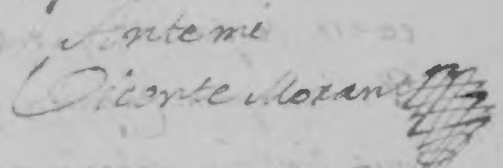 Antemi
Vicente Moran